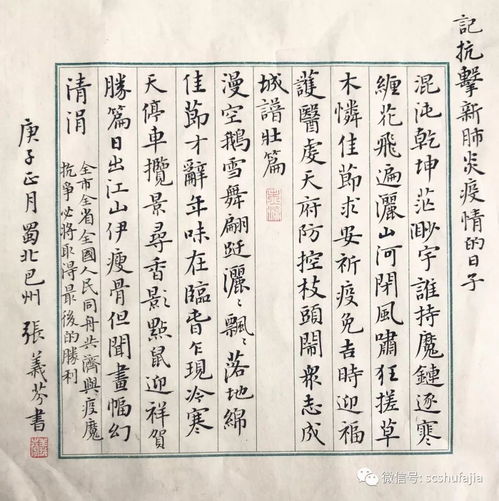 記抗擊新肺炎疫情的日子
混沌乾坤茫眇宇誰持魔鏈逐寒
纏花飛遍灑山河閉風嘯狂搓草
木憐佳節求安祈疫免吉時迎福
護醫虔天府防控枝頭鬧眾志成
城譜壯篇
漫空鵝雪舞翩跹灑〻飄〻落地綿
佳節才辭年味在臨春乍現冷寒
天停車攬景尋香影點鼠迎祥賀
勝篇日出江山伊瘦骨但聞畫幅幻
清涓
全市全省全國人民同舟共濟與疫魔
抗爭必將取得最後的勝利
庚子正月蜀北巴州張義芬書
微信号: scshufajia